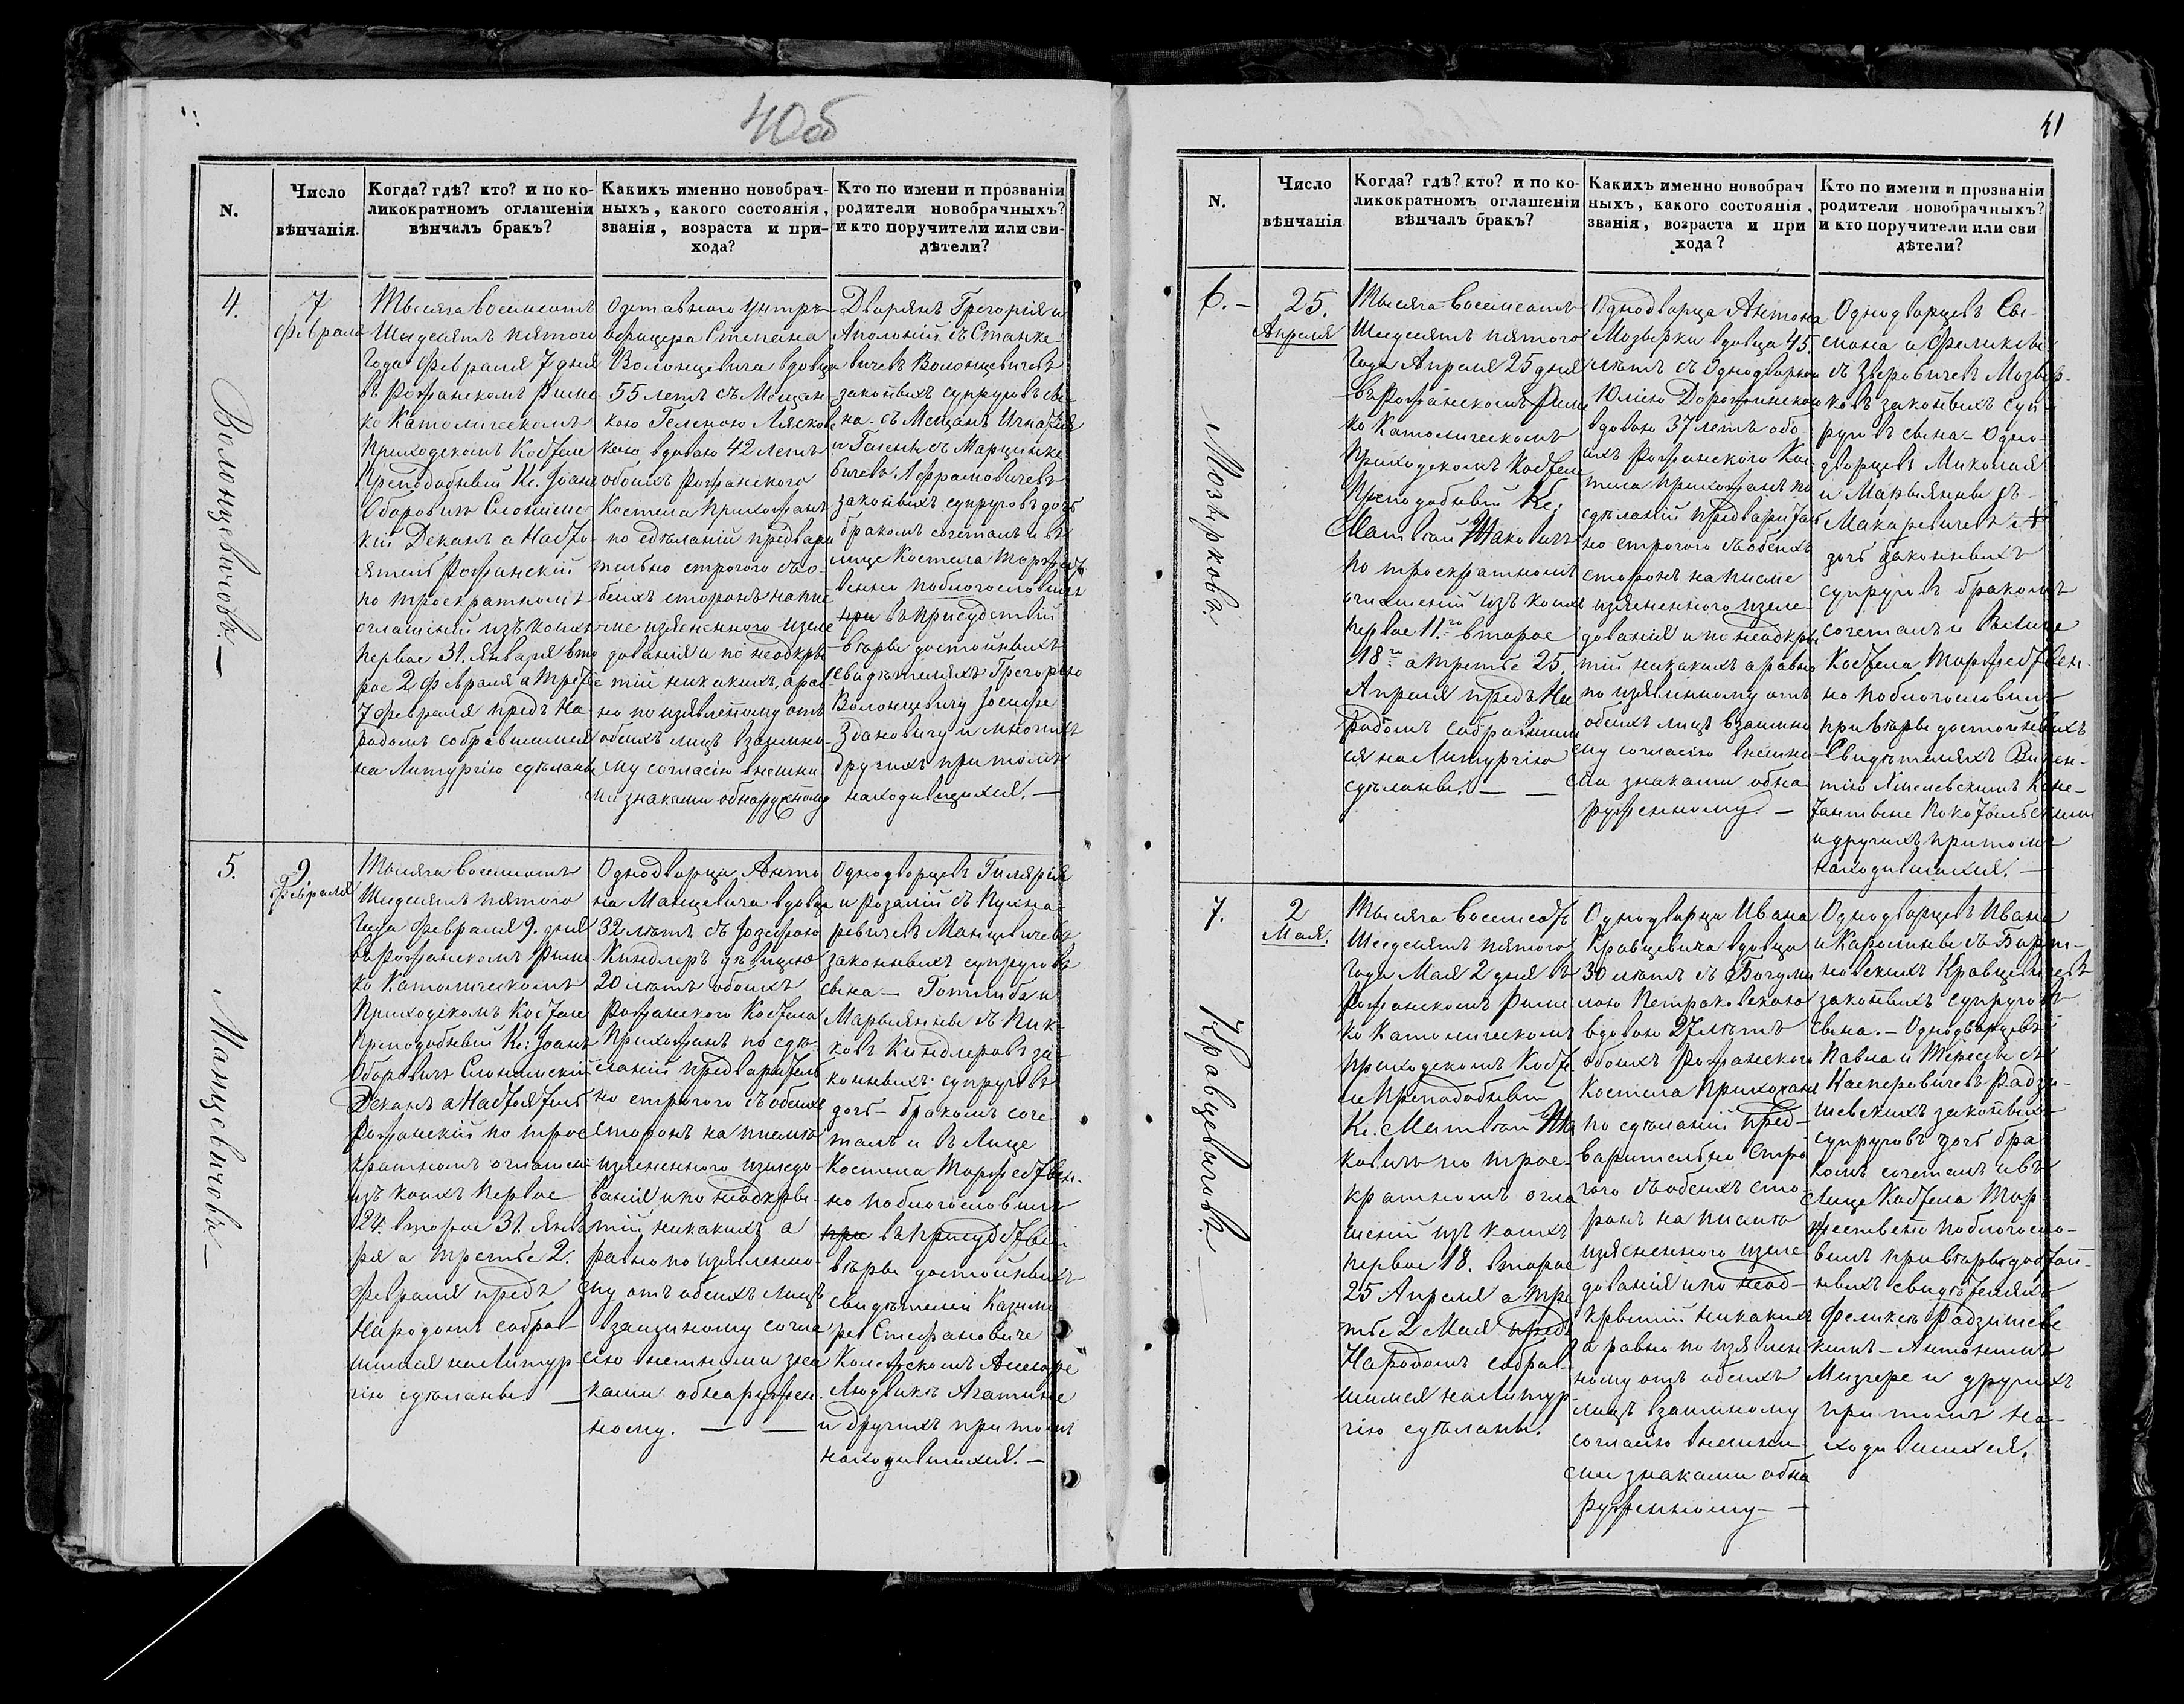 40об
N.
Число
вѣнчанія.
Когда? гдѣ? кто? и по ко-
ликократномъ оглашеніи
вѣнчалъ бракъ?
Какихъ именно новобрач-
ныхъ, какого состоянія,
званія, возраста и при-
хода?
Кто по имени и прозваніи
родители новобрачныхъ?
и кто поручители или сви-
дѣтели?
4.
Волонцевичовъ.—
7
Февраля
Тысяча восемсотъ
Шедсятъ пятого
Года Февраля 7 дня
въ Рожанскомъ Римс
ко Католическомъ
Приходскомъ Костеле
Преподобный Кс. Іоанъ
Оборовичъ Слонимс
кій Деканъ а Насто-
ятель Рожанскій
по троекратномъ
оглашеніи изъ коихъ
первое 31. Января вто
рое 2 Февраля а третье
7 Февраля предъ На
родомъ собравшимся
на Литургію сдѣланы
Отставного Унтръ
офицера Степана
Волонцевича вдовца
55 летъ съ Мещан
кою Геленою Лясков
кею вдовою 42 летъ
обоихъ Рожанского
Костела Прихожанъ
по сдѣланій предвари
тельно строгого съ о-
беихъ сторонъ на пис
ме изясненного изсле
дованія и по неодкры
тій никакихъ, а рав
но по изявленому отъ
обеихъ лицъ взаимно
му согласію внешни
ми знаками обнаружному
Дворянъ Грегорія и
Аполоній съ Станке-
вичевъ Волонцевичевъ
законныхъ супруговъ сы
на - съ Мещанъ Игнатія
и Гелены съ Марцинке
вичевъ Афрамовичевъ
законныхъ супруговъ дочь
бракомъ сочеталъ и въ
лице Костела Торжест
венно поблогословилъ
при въ присудствій
вѣры достойныхъ
Свидѣтеляхъ Грегорью
Волонцевичу Іосифе
Здановичу и многихъ
другихъ при томъ
находившихся.—
5.
Манцевичовъ.—
9
Февраля
Тысяча восемсотъ
Шедсятъ пятого
Года Февраля 9. дня
въ Рожанскомъ Римс
ко Католическомъ
Приходскомъ Костеле
Преподобный Кс: Іоанъ
Оборовичъ Слонимскій
Деканъ а Настоятель
Рожанскій по трое
кратномъ оглашеніи
изъ коихъ первое
24. второе 31. Янва
ря а третье 2.
Февраля предъ
Народомъ собрав-
шимся на Литур
гію сдѣланы. —
Однодворца Анто
на Манцевича вдовца
32 летъ съ Іозефою
Киндлеръ дѣвицею
20 летъ обоихъ
Рожанского Костела
Прихожанъ по сдѣ-
ланій предваритель
но строгого съ обеихъ
сторонъ на письмѣ
изясненного изследо
ванія и по неодкры-
тій никакихъ а
равно по изявлено-
му отъ обеихъ лицъ
взаимному согла
сію внешними зна
ками обнаружен
ному. — —
Однодворцевъ Гиляріа
и Розаліи съ Пухна-
ревичевъ Манцевичевъ
законныхъ супруговъ
сына — Готлиба и
Марыянны съ Пик-
ковъ Киндлеровъ за-
конныхъ супруговъ
дочь — бракомъ соче-
талъ и въ Лице
Костела Торжествен-
но поблогословилъ
при въ присудствій
вѣры достойныхъ
свидѣтелей Казими
ре Стефановиче
Людвикѣ
и другихъ при томъ
находившихся. —
41
N.
Число
вѣнчанія
Когда? гдѣ? кто? и по ко-
ликократномъ оглашеніи
вѣнчалъ бракъ?
Какихъ именно новобрач
ныхъ, какого состоянія,
званія, возраста и при
хода?
Кто по имени и прозваніи
родители новобрачныхъ?
и кто поручители или сви
дѣтели?
6.—
Мозырковъ
25.
Апреля
Тысяча восемсотъ
Шедсятъ пятого
Года Апреля 25 дня
въ Рожанскомъ Римс
ко Католическомъ
Приходскомъ Костеле
Преподобный Кс:
Матвѣй Жаковичъ
по троекратномъ
оглашеній изъ коихъ
первое 11.го второе
18го а третье 25.
Апреля предъ На
родомъ собравшим
ся на Литургію
сдѣланы. — —
Однодворца Антона
Мозырки вдовца 45.
летъ съ Однодворкою
Юліею
вдовою 37 летъ обо-
ихъ Рожанского Кос
тела прихожанъ по
сдѣланій предваритель
но строгого съ обеихъ
сторонъ на писме
изясненного изсле
дованія и по неодкры
тій никакихъ а равно
по изявленному отъ
обеихъ лицъ взаимно
му согласію внешни
ми знаками обна
руженному. —
Однодворцевъ Си-
мона и Феликсы
съ Зверовичевъ Мозыр-
ковъ законныхъ суп
руговъ сына — Одно-
дворцевъ Миколая
и Марыянны съ
Макаревичевъ
дочь законныхъ
супруговъ бракомъ
сочеталъ и въ Лице
Костела Торжествен-
но поблогословилъ
при вѣры достойныхъ
Свидѣтеляхъ Викен-
тію
и другихъ при томъ
находившихся. —
7.
Кравцевичовъ. —
2
Мая.
Тысяча восемсотъ
Шедсятъ пятого
Года Мая 2 дня въ
Рожанскомъ Римс
ко Католическомъ
приходскомъ Косте
ле Преподобный
Кс. Матвѣй Жа
ковичъ по трое-
кратномъ огла
шеній изъ коихъ
первое 18. второе
25 Апреля а тре
тье 2 Мая предъ
Народомъ собрав-
шимся на Литур
гію сдѣланы.
Однодворца Ивана
Кравцевича вдовца
30 летъ съ Богуми
лою Петраковскою
вдовою 27 летъ
обоихъ Рожанского
Костела Прихожанъ
по сдѣланій пред-
варительно стро
гого съ обеихъ сто
ронъ на писмѣ
изясненного изсле
дованія и по неод-
крытій никакихъ
а равно по изявлен
ному отъ обеихъ
лицъ взаимному
согласію внешни
ми знаками обна
руженному — —
Однодворцевъ Ивана
и Каролины съ Барт-
новскихъ Кравцевичевъ
законныхъ супруговъ
сына. — Однодворцевъ
Павла и Тересы съ
Касперовичевъ Радзи-
шевскихъ законныхъ
супруговъ дочь бра
комъ сочеталъ и въ
Лице Костела Тор-
жественно поблогосло-
вилъ при вѣры достой-
ныхъ свидѣтеляхъ
Феликсѣ Радзишевс
кимъ — Антонимъ
Мизгере и другихъ
при томъ на-
ходившихся.